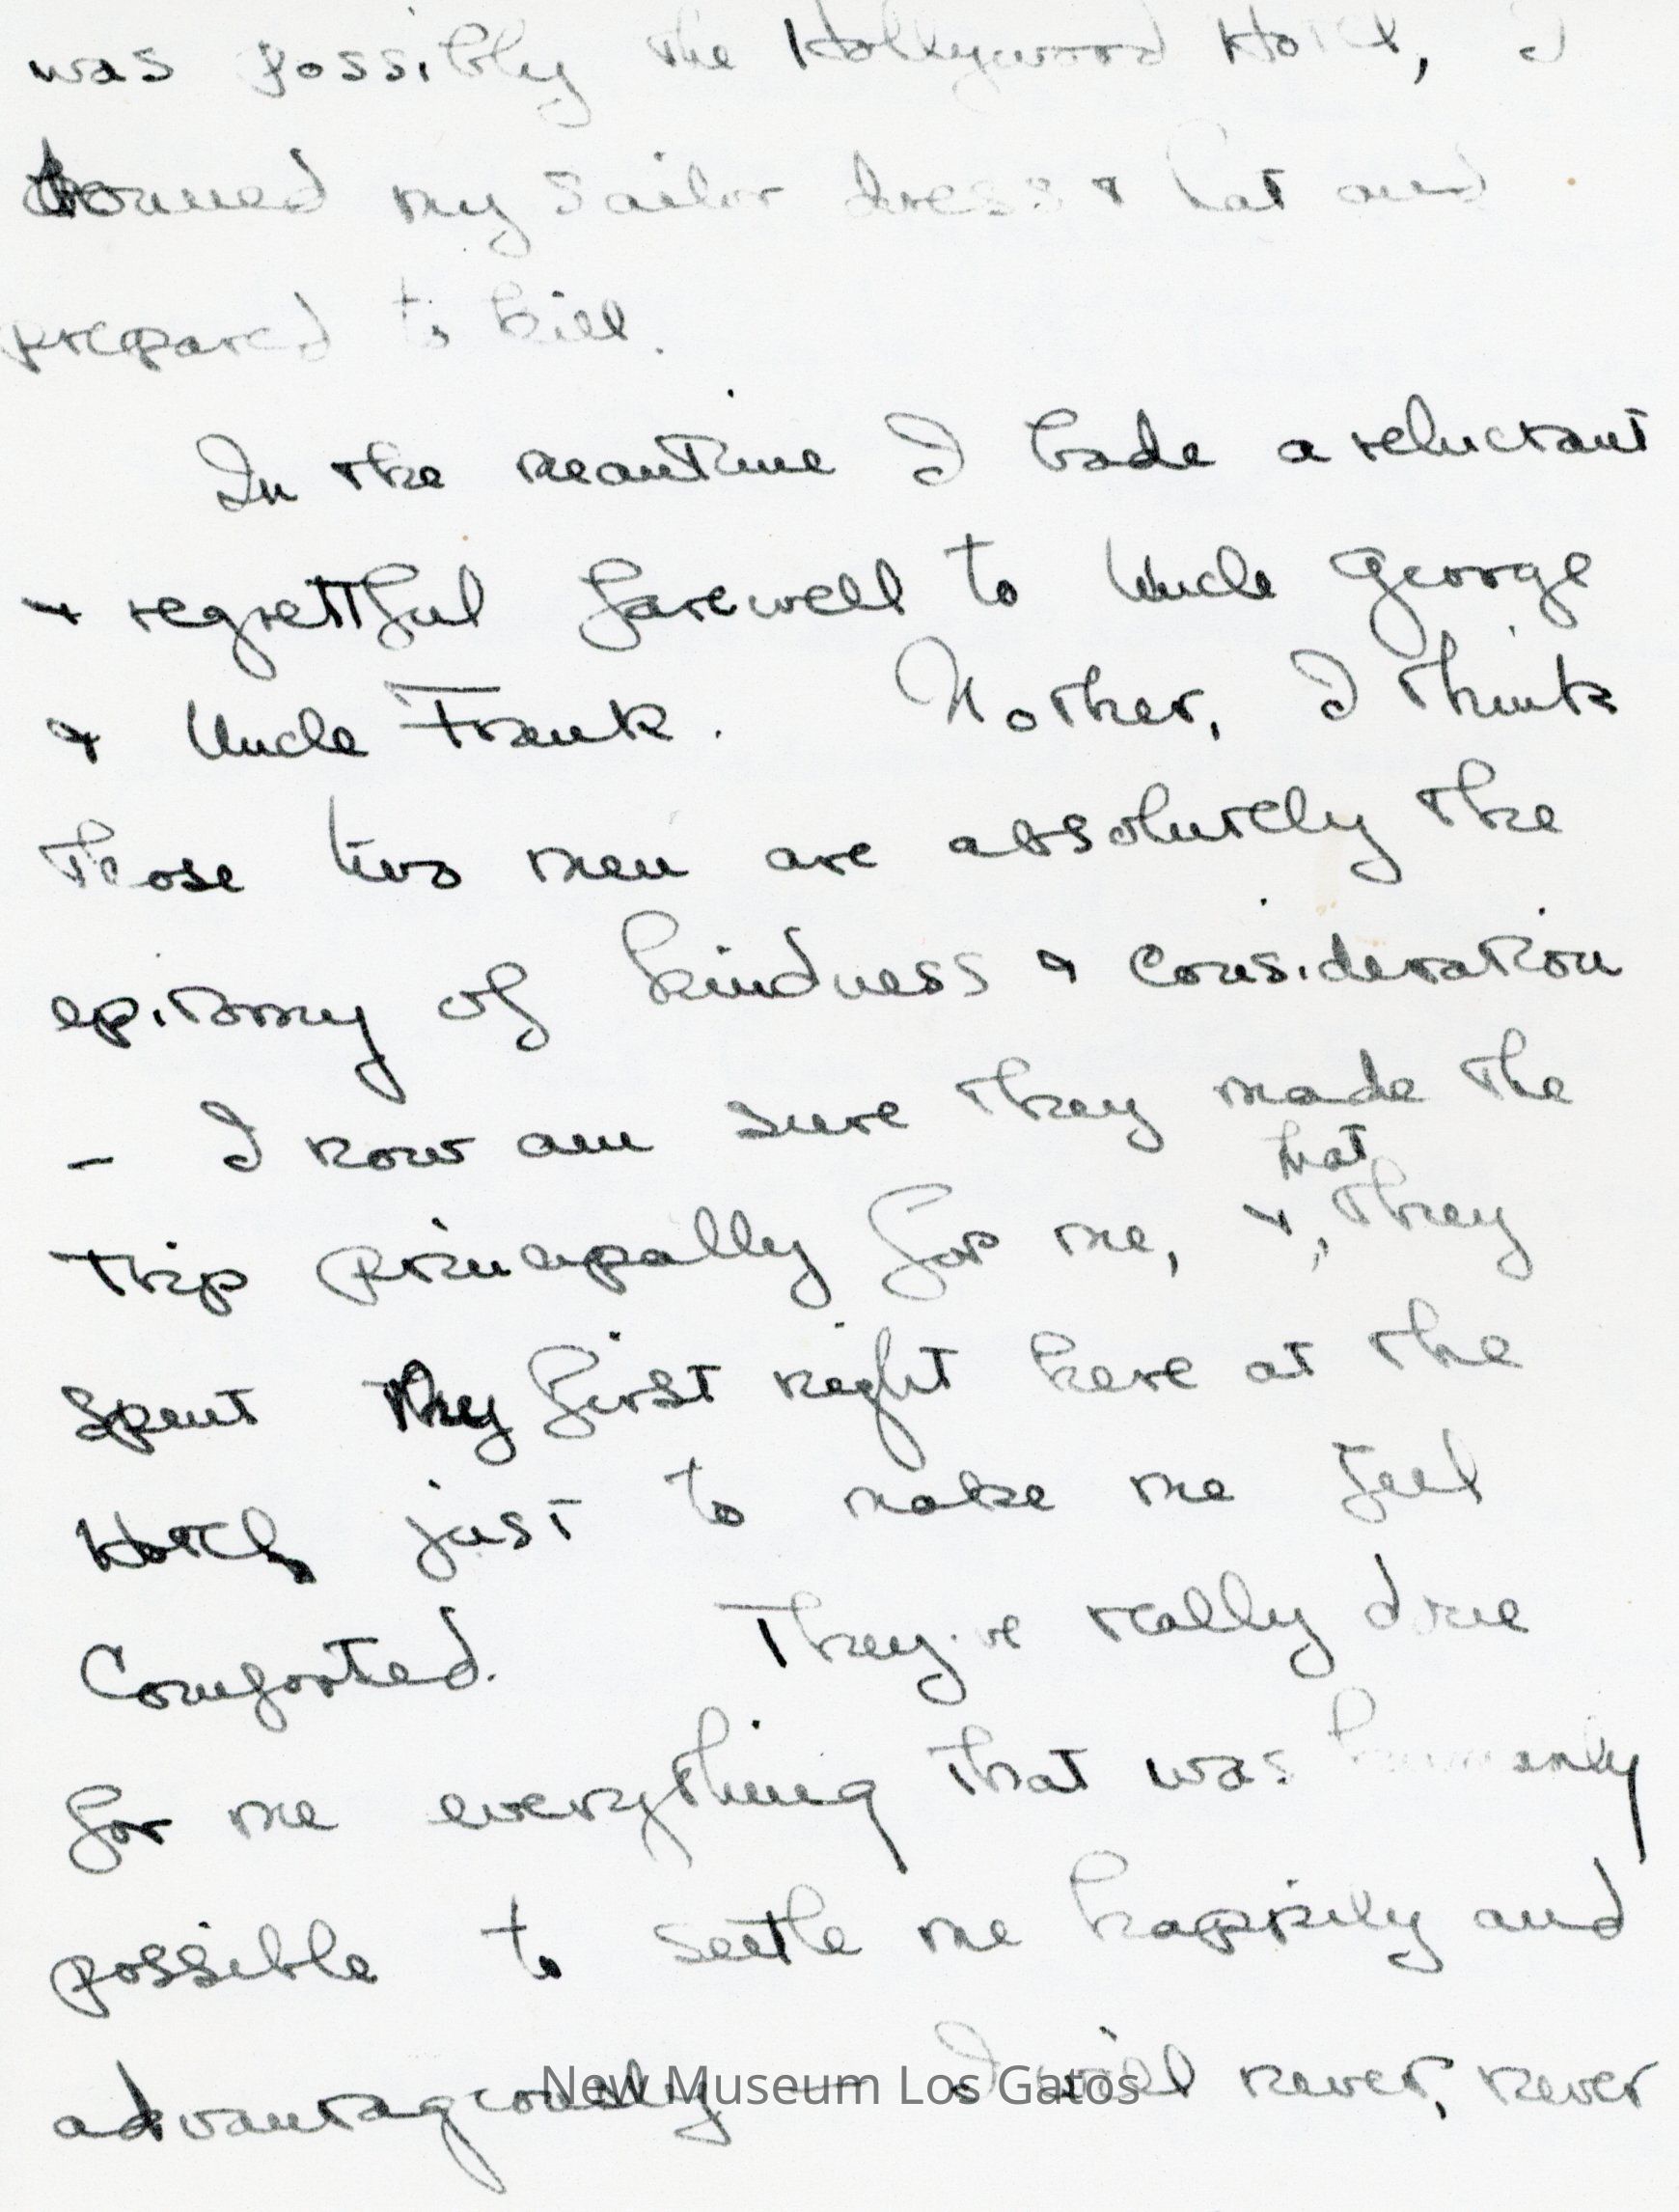 was possibly the Hollywood Hotel, I
donned my sailor dress & hat and
prepared to kill.
In the meantime I bade a reluctant
& regrettful farewell to Uncle George
& Uncle Frank. Mother, I think
those two men are absolutely the
epitomy of kindness & consideration
- I now am sure they made the
that
trip principally for me, &, they
spent they first night here at the
Hotel just to make me feel
Comforted. They've really done
for me everything that was humanly
possible to settle me happily and
advantageously — I will never, never
New Museum Los Gatos